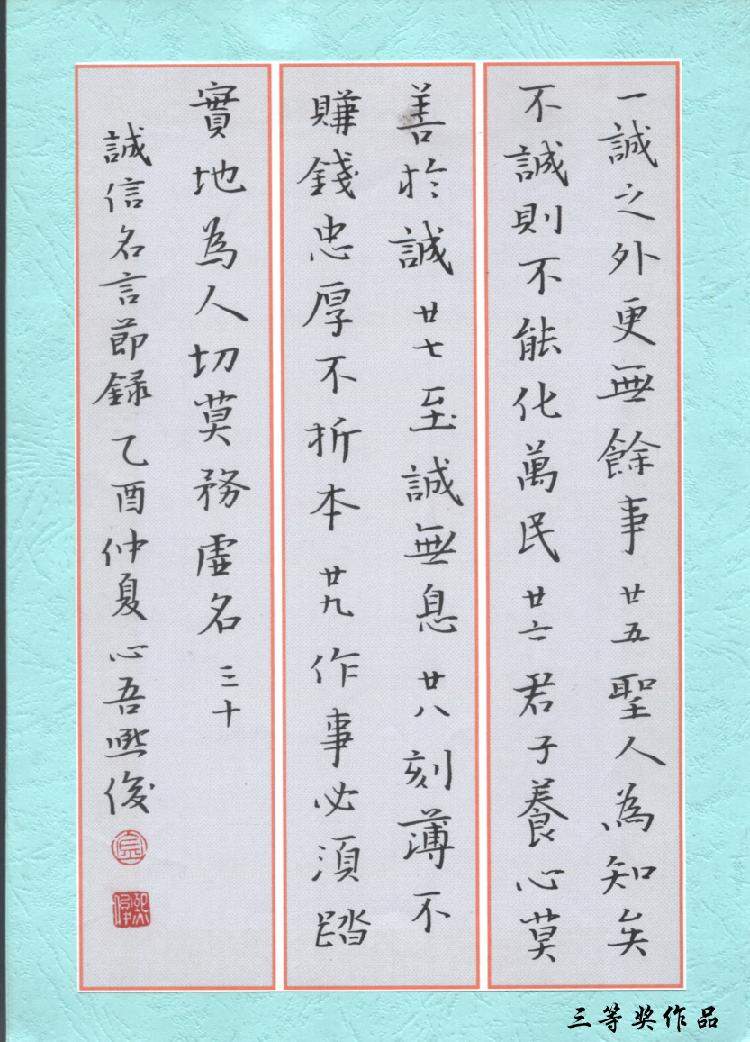 一誠之外更無餘事 廿五 聖人為知矣
不誠則不能化萬民 廿六 君子養心莫
善於誠 廿七 至誠無息 廿八 刻薄不
賺錢忠厚不折本 廿九 作事必須踏
實地為人切莫務虛名 三十
誠信名言節録 乙酉仲夏 心吾熙俊
三等奖作品